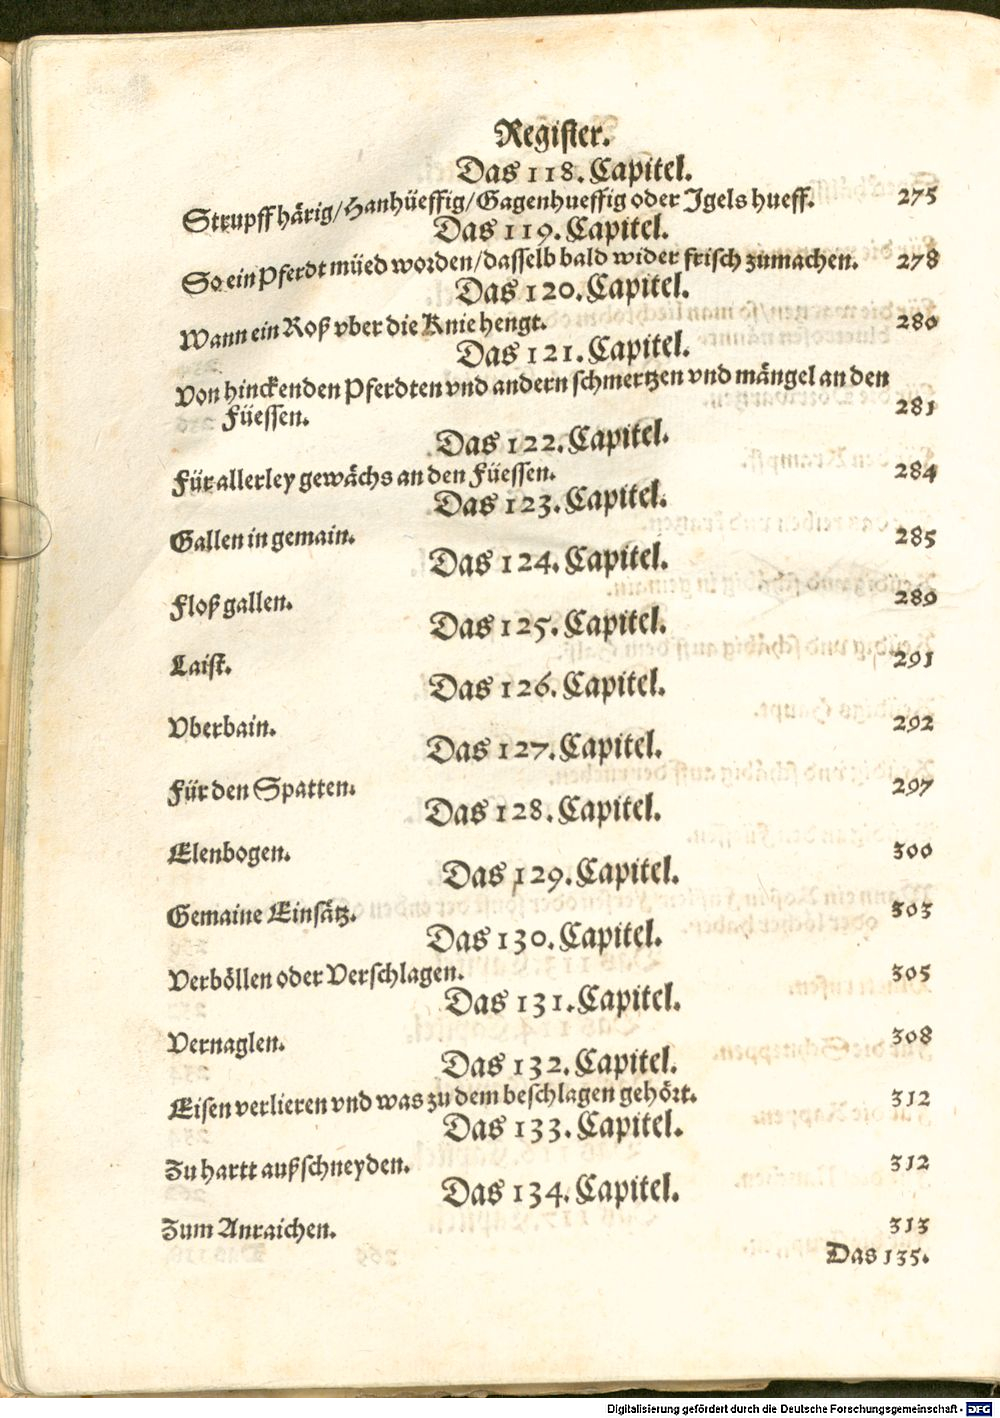 Register.
Das 118. Capitel.
Strupff härig/Hanhüeffig/Gagenhueffig oder Igels hueff. 275
Das 119. Capitel.
So ein Pferdt müed worden/dasselb bald wider frisch zumachen. 278
Das 120. Capitel.
Wann ein Roß vber die Knie hengt. 280
Das 121. Capitel.
Von hinckenden Pferdten vnd andern schmertzen vnd mängel an den
Füessen. 281
Das 122. Capitel.
Für allerley gewächs an den Füessen. 284
Das 123. Capitel.
Gallen in gemain. 285
Das 124. Capitel.
Floß gallen. 289
Das 125. Capitel.
Laist. 291
Das 126. Capitel.
Vberbain. 292
Das 127. Capitel.
Für den Spatten. 297
Das 128. Capitel.
Elenbogen. 300
Das 129. Capitel.
Gemaine Einsätz. 303
Das 130. Capitel.
Verböllen oder Verschlagen. 305
Das 131. Capitel.
Vernaglen. 308
Das 132. Capitel.
Eisen verlieren vnd was zu dem beschlagen gehört. 312
Das 133. Capitel.
Zu hartt außschneyden. 312
Das 134. Capitel.
Zum Anraichen. 313
Das 135.
Digitalisierung gefördert durch die Deutsche Forschungsgemeinschaft - DFG